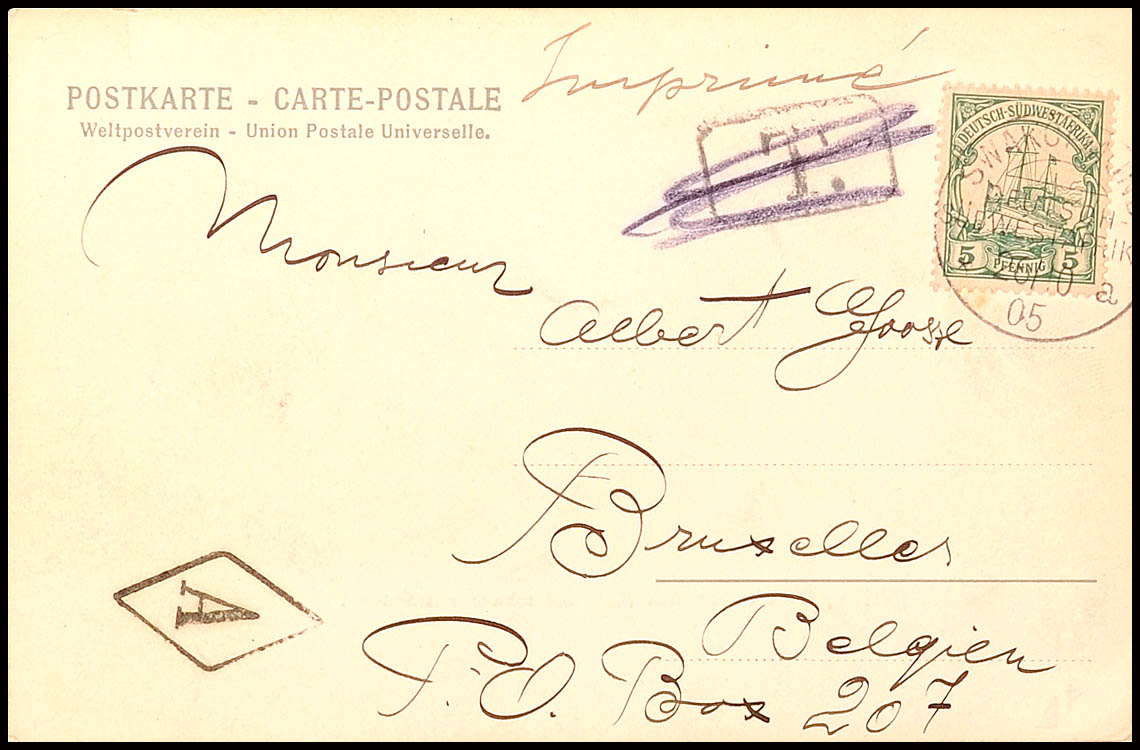 Imprimé
POSTKARTE - CARTE-POSTALE
Weltpostverein - Union Postale Universelle.
T.
DEUTSCH-SÜDWESTAFRIKA
5 PFENNIG 5
a
05
Monsieur
Albert Goosse
Bruxelles
Belgien
P.O. Box 207
A